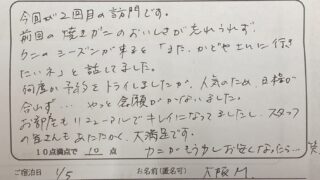 今回が2回目の訪問です。
前回の焼きガニのおいしさが忘れられず、
カニのシーズンが来ると「また、かどや さんに行き
たいネ」と話してました。
何度か予約をトライしましたが、人気のため、日程が
合わず… やっと念願がかないました。
お部屋もリニューアルでキレイになってましたし、スタッフ
の皆さんもあたたかく、大満足です。
10点満点で 10 点 カニがもう少しお安くなったら…笑
ご宿泊日 1/5 お名前(匿名可) 大阪 M.